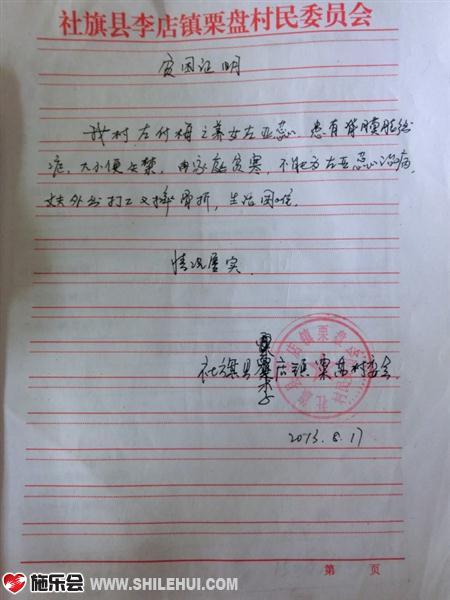 社旗县李店镇栗盘村民委员会
贫困证明
我村左付梅之养女左亚蕊，患有脊膜膨
症，大小便失禁，由家庭贫寒，不能为左亚蕊治病，
丈夫外出打工又摔骨折，生活困难。
情况属实
社旗县李店镇栗盘村委会
2013.8.17
第 页
施乐会 www.SHILEHUI.COM